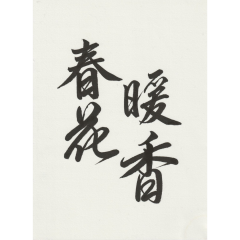 春暖
花香